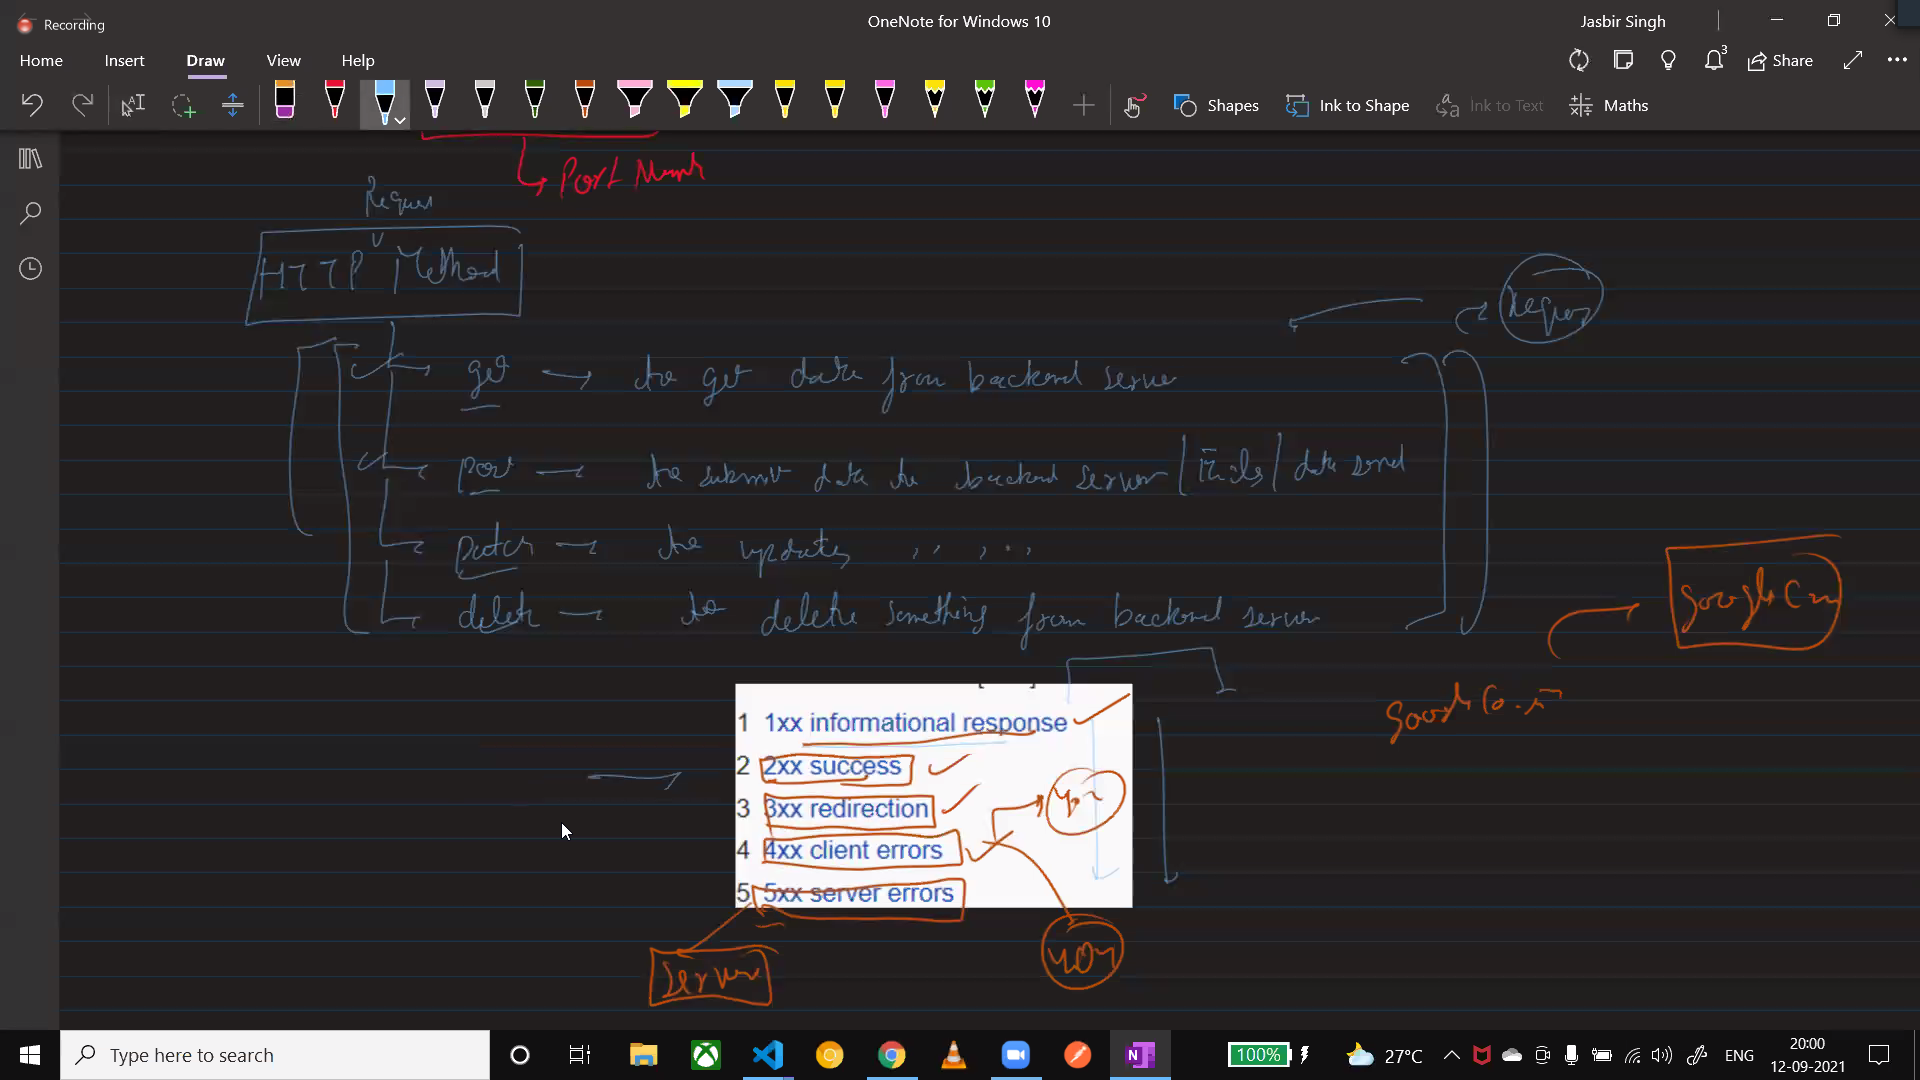 Recording
OneNote for Windows 10
Jasbir Singh
Home Insert Draw View Help
3
Share
Shapes
Ink to Shape
Ink to Text
Maths
Port
Reques
HTTP Method
get → to get data from backend server
to submit data to backend server | | data send
patch → to updates
delete → to delete something from backend server
1 1xx informational response
2 2xx success
3 3xx redirection
4 4xx client errors
5 5xx server errors
404
server
Type here to search
100%
27°C
ENG
20:00
12-09-2021